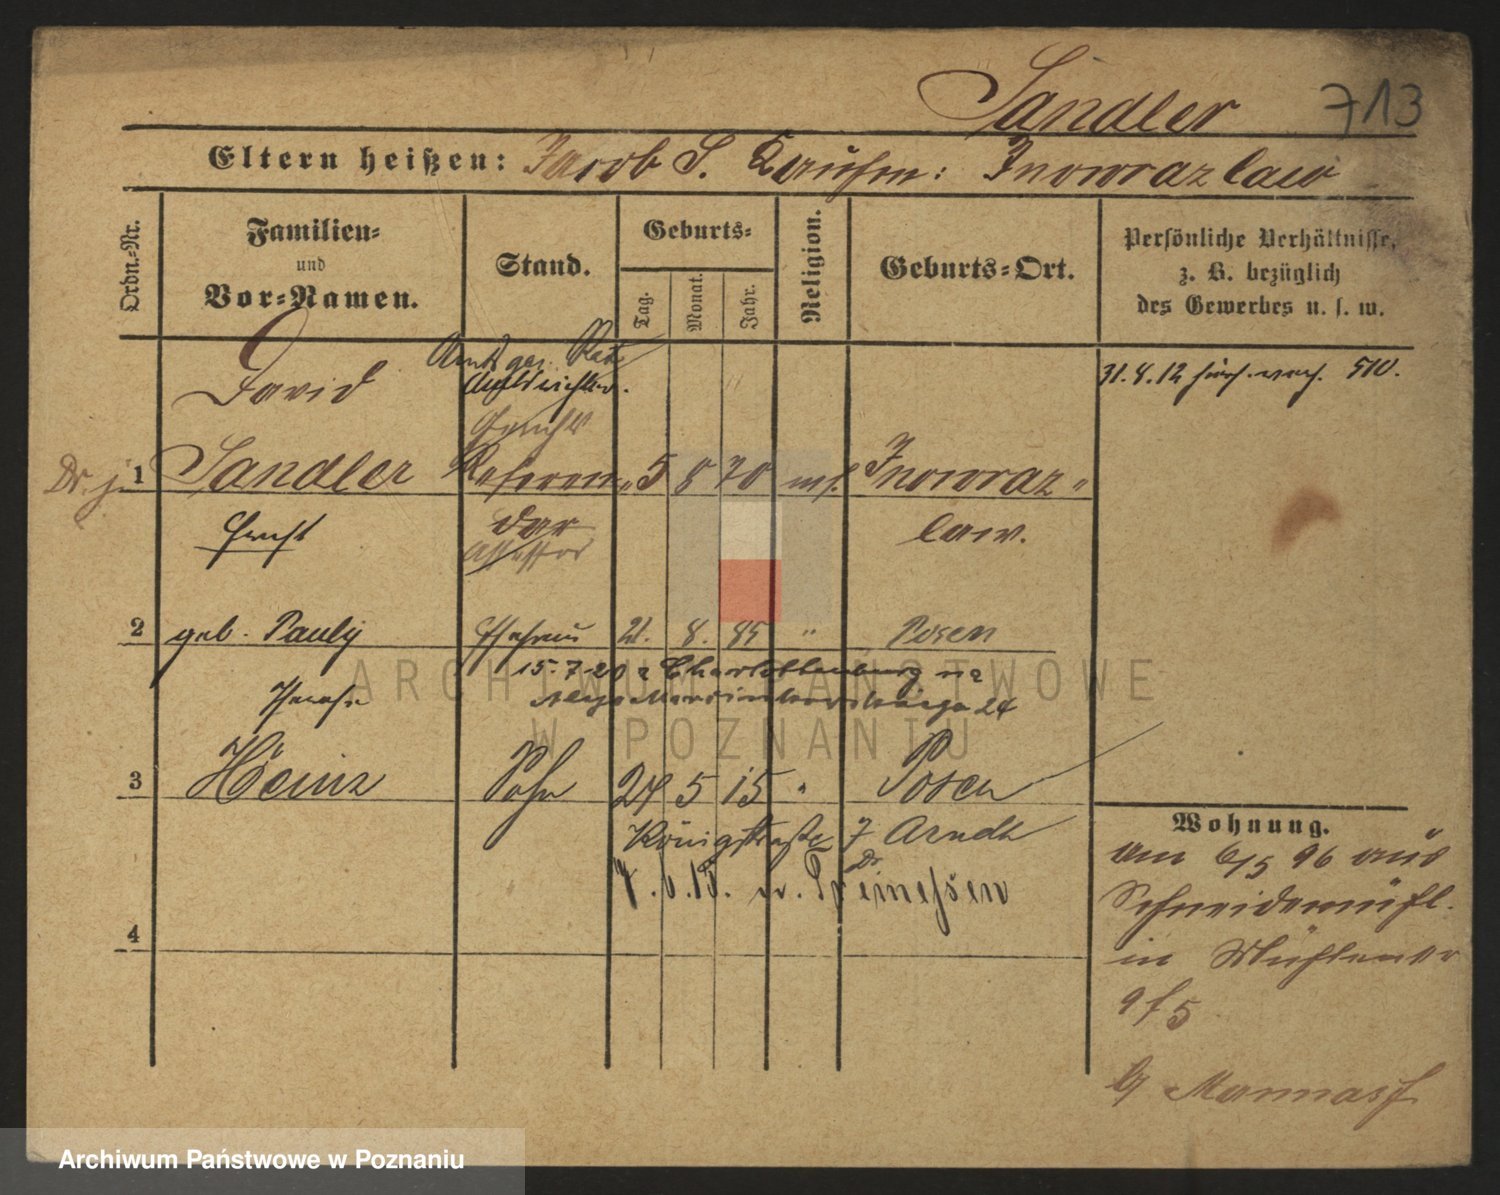 Sandler 713
Eltern heißen: Jacob S. Inowrazlaw
Ordn.-Nr.
Familien-
und
Vor-Namen.
Stand.
Geburts-
Tag.
Monat.
Jahr.
Religion.
Geburts-Ort.
Persönliche Verhältnisse,
z. B. bezüglich
des Gewerbes u. s. w.
David
Amtsger. Rat
Amtsrichter.
31.8.12 510.
Gerichts
Dr. j. 1 Sandler Referen- 5 8 70 mos. Inowraz-
dar law.
Assessor
2 geb. Pauly Ehefrau 21. 8. 85 " Posen
15.7.20 a Charlottenburg na
Aleje Marcinkowskiego 24
3 Heinz Sohn 24 5 15 " Posen
Königstraße 7 Arndt
4
Wohnung.
am 6/5 96 aus
Schneidemühl.
in Mühlenstr
9 f 5
b/ Mannasf
ARCHIWUM PAŃSTWOWE
W POZNANIU
Archiwum Państwowe w Poznaniu